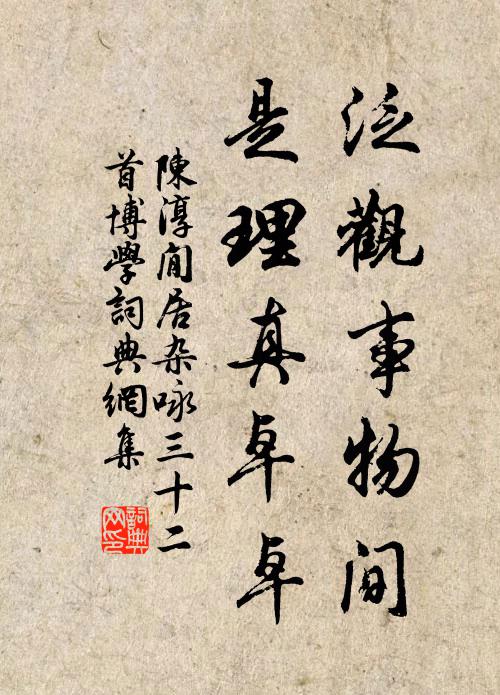 泛觀事物間
是理真卓卓
陳淳閒居杂咏三十二
首博學詞典網集
詞典
网印